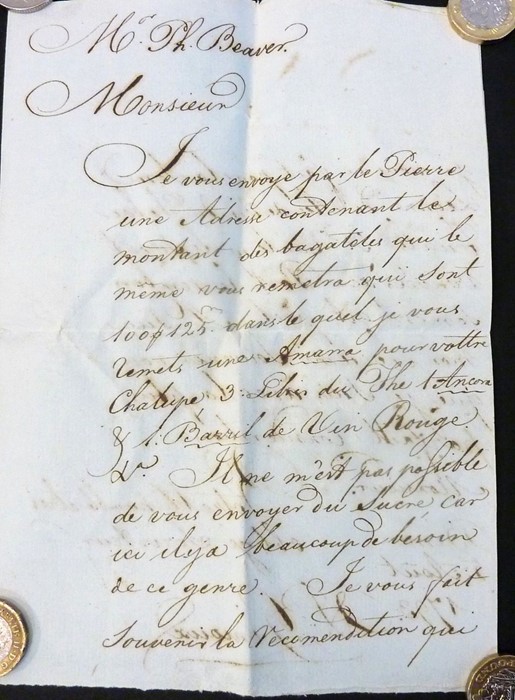 Mr. Ph. Beaver.
Monsieur
Je vous envoye par le Pierre
une Adresse contenant le
montant des bagatèles qui le
même vous remetra qui sont
100$ 125rs. dans le quel je vous
remets une Amarra pour vottre
Chalupe 3. du The 1 Ancora
& 1. Barril de Vin Rouge.
Il ne m'est pas possible
de vous envoyer du Sucre car
ici il y a beaucoup de besoin
de ce genre. Je vous fait
souvenir la recomendition qui